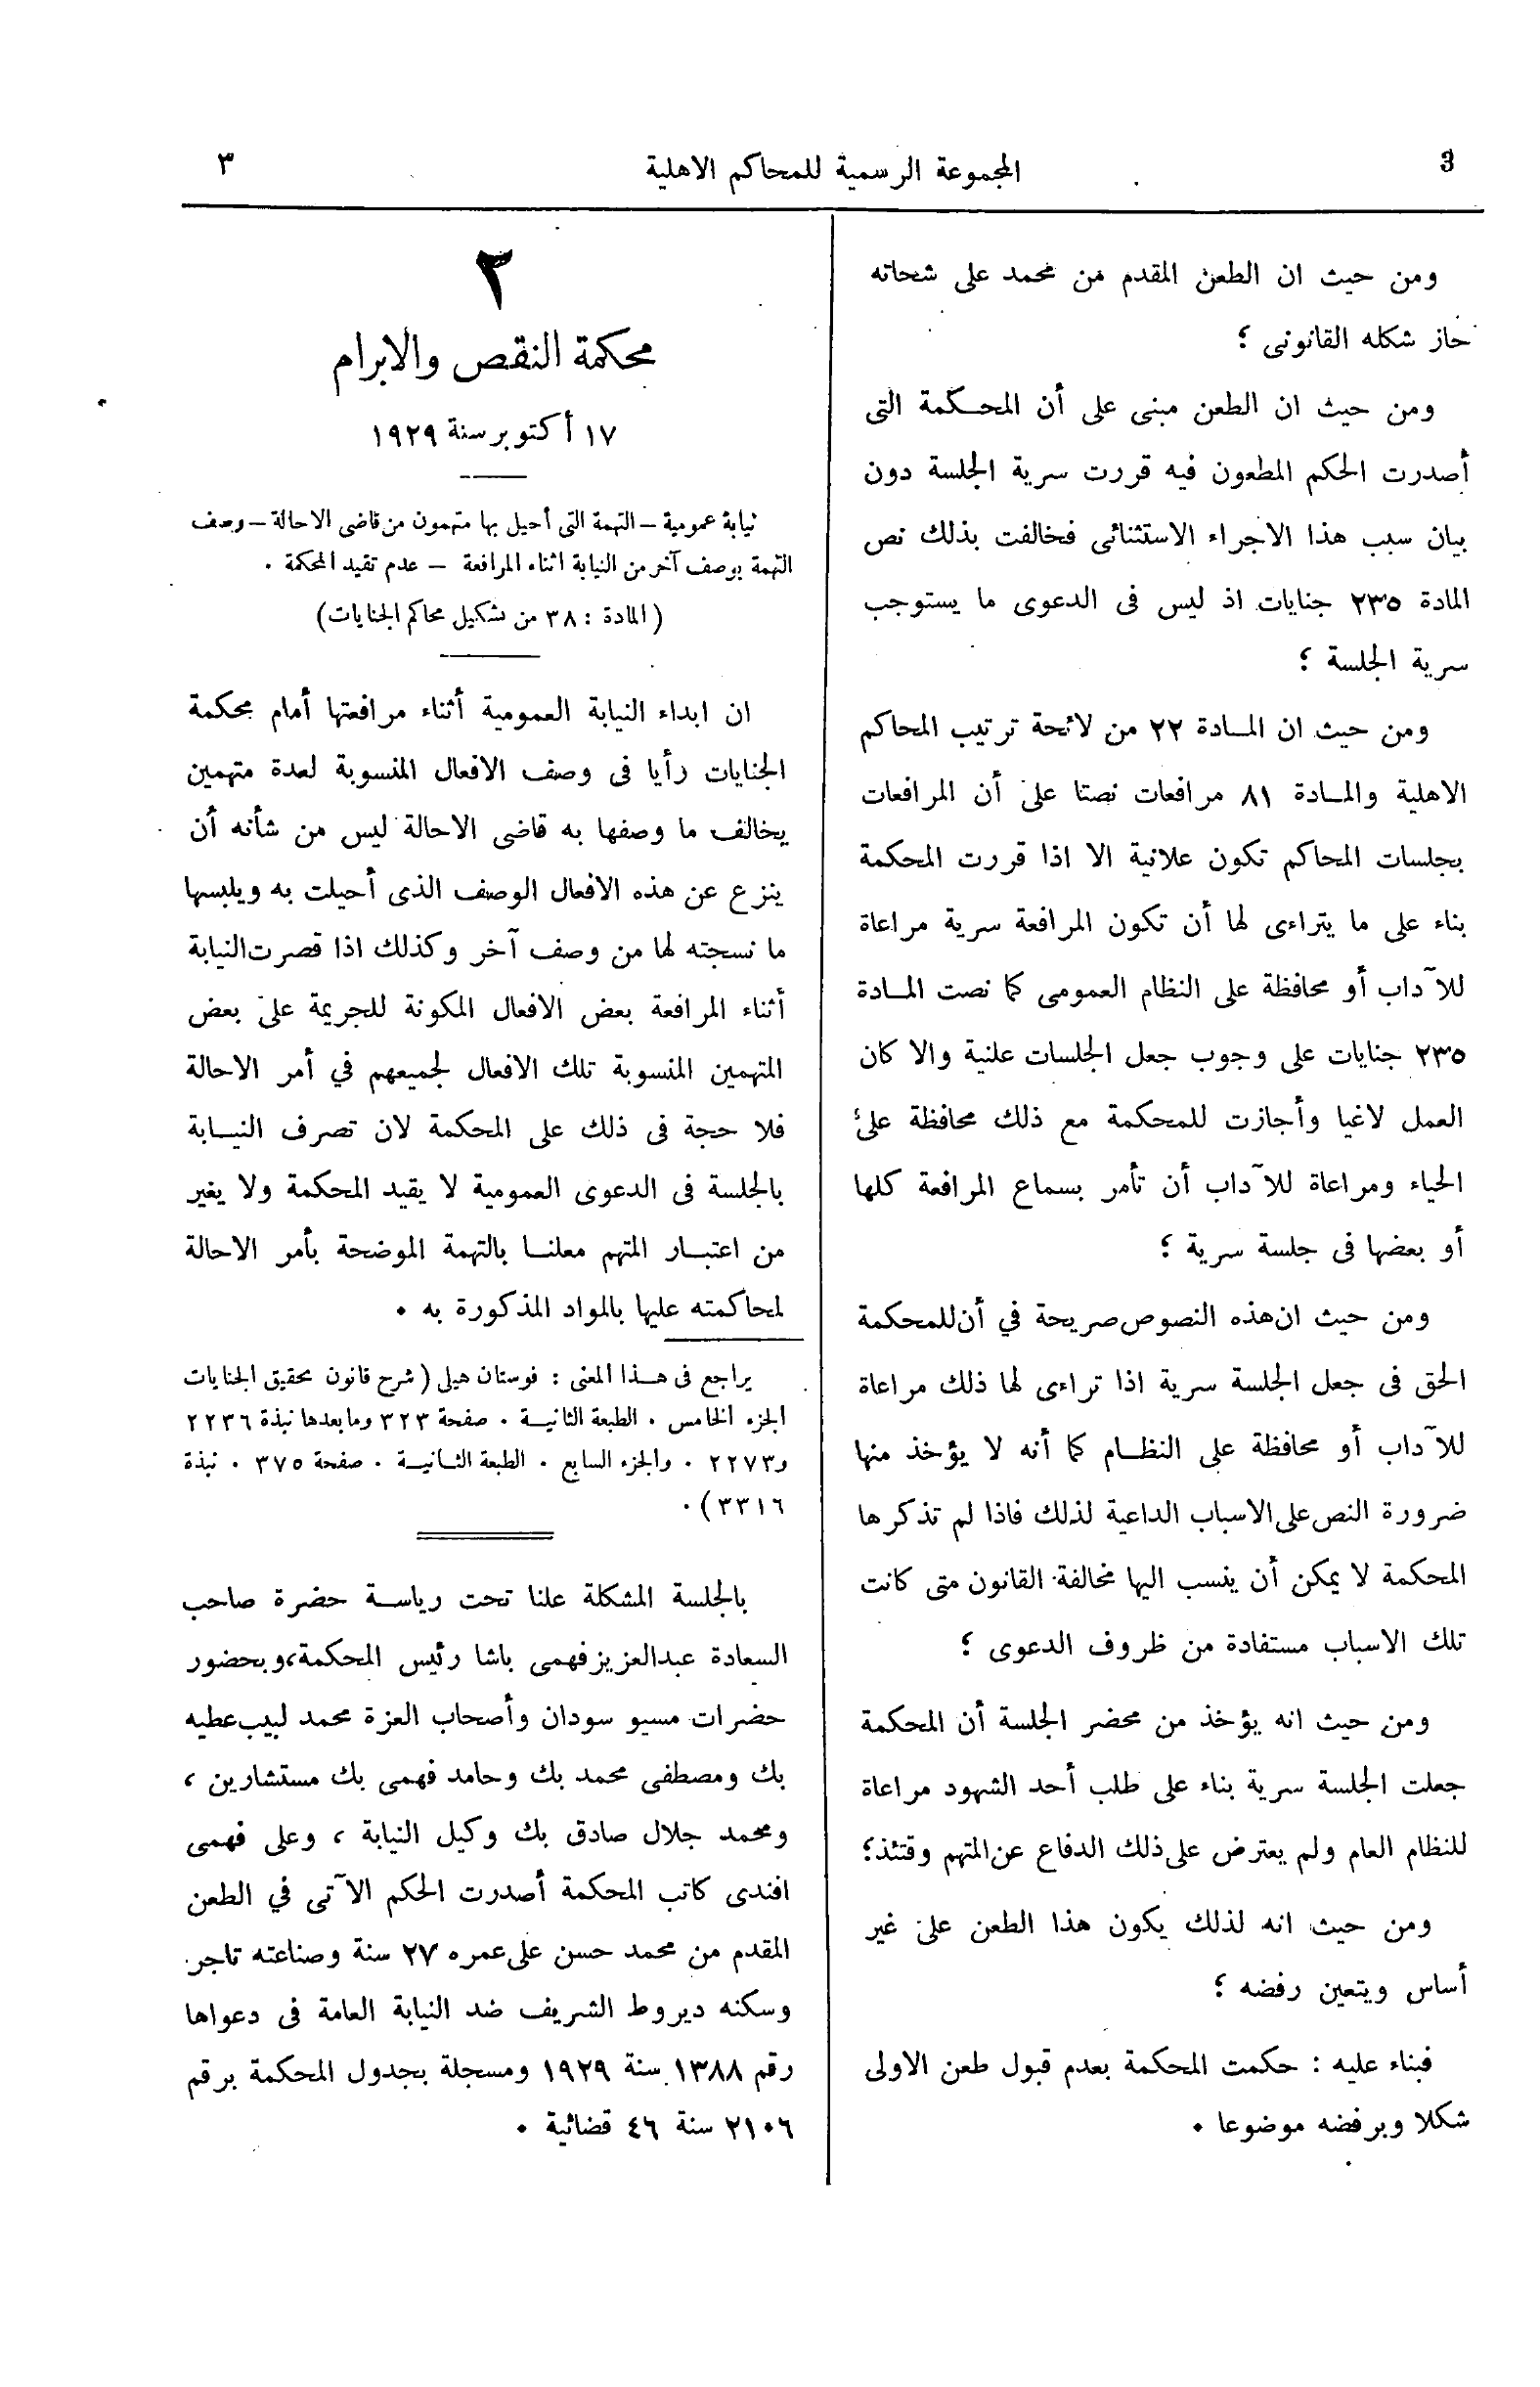 3
المجموعة الرسمية للمحاكم الاهلية
٣
ومن حيث ان الطعن المقدم من محمد على شحاته
حاز شكله القانونى ؛
ومن حيث ان الطعن مبنى على أن المحكمة التى
أصدرت الحكم المطعون فيه قررت سرية الجلسة دون
بيان سبب هذا الاجراء الاستثنائى فخالفت بذلك نص
المادة ٢٣٥ جنايات اذ ليس فى الدعوى ما يستوجب
سرية الجلسة ؛
ومن حيث ان المادة ٢٢ من لائحة ترتيب المحاكم
الاهلية والمادة ٨١ مرافعات نصتا على أن المرافعات
بجلسات المحاكم تكون علانية الا اذا قررت المحكمة
بناء على ما يتراءى لها أن تكون المرافعة سرية مراعاة
للآداب أو محافظة على النظام العمومى كما نصت المادة
٢٣٥ جنايات على وجوب جعل الجلسات علنية والا كان
العمل لاغيا وأجازت للمحكمة مع ذلك محافظة على
الحياء ومراعاة للآداب أن تأمر بسماع المرافعة كلها
أو بعضها فى جلسة سرية ؛
ومن حيث ان هذه النصوص صريحة في أن للمحكمة
الحق فى جعل الجلسة سرية اذا تراءى لها ذلك مراعاة
للآداب أو محافظة على النظام كما أنه لا يؤخذ منها
ضرورة النص على الاسباب الداعية لذلك فاذا لم تذكرها
المحكمة لا يمكن أن ينسب اليها مخالفة القانون متى كانت
تلك الاسباب مستفادة من ظروف الدعوى ؛
ومن حيث انه يؤخذ من محضر الجلسة أن المحكمة
جعلت الجلسة سرية بناء على طلب أحد الشهود مراعاة
للنظام العام ولم يعترض على ذلك الدفاع عن المتهم وقتئذ ؛
ومن حيث انه لذلك يكون هذا الطعن على غير
أساس ويتعين رفضه ؛
فبناء عليه : حكمت المحكمة بعدم قبول طعن الاولى
شكلا وبرفضه موضوعا .
٣
محكمة النقض والابرام
١٧ أكتوبر سنة ١٩٢٩
نيابة عمومية – التهمة التى أحيل بها متهمون من قاضى الاحالة – وصف
التهمة بوصف آخر من النيابة اثناء المرافعة – عدم تقيد المحكمة .
(المادة : ٣٨ من تشكيل محاكم الجنايات)
ان ابداء النيابة العمومية أثناء مرافعتها أمام محكمة
الجنايات رأيا فى وصف الافعال المنسوبة لعدة متهمين
يخالف ما وصفها به قاضى الاحالة ليس من شأنه أن
ينزع عن هذه الافعال الوصف الذى أحيلت به ويلبسها
ما نسجته لها من وصف آخر وكذلك اذا قصرت النيابة
أثناء المرافعة بعض الافعال المكونة للجريمة على بعض
المتهمين المنسوبة تلك الافعال لجميعهم في أمر الاحالة
فلا حجة فى ذلك على المحكمة لان تصرف النيابة
بالجلسة فى الدعوى العمومية لا يقيد المحكمة ولا يغير
من اعتبار المتهم معلنا بالتهمة الموضحة بأمر الاحالة
لمحاكمته عليها بالمواد المذكورة به .
يراجع فى هذا المعنى : فوستان هيلى (شرح قانون تحقيق الجنايات
الجزء الخامس . الطبعة الثانية . صفحة ٣٢٣ وما بعدها نبذة ٢٢٣٦
و٢٢٧٣ . والجزء السابع . الطبعة الثانية . صفحة ٣٧٥ . نبذة
٣٣١٦) .
بالجلسة المشكلة علنا تحت رياسة حضرة صاحب
السعادة عبدالعزيز فهمى باشا رئيس المحكمة، وبحضور
حضرات مسيو سودان وأصحاب العزة محمد لبيب عطيه
بك ومصطفى محمد بك وحامد فهمى بك مستشارين ،
ومحمد جلال صادق بك وكيل النيابة ، وعلى فهمى
افندى كاتب المحكمة أصدرت الحكم الآتى في الطعن
المقدم من محمد حسن على عمره ٢٧ سنة وصناعته تاجر
وسكنه ديروط الشريف ضد النيابة العامة فى دعواها
رقم ١٣٨٨ سنة ١٩٢٩ ومسجلة بجدول المحكمة برقم
٢١٠٦ سنة ٤٦ قضائية .